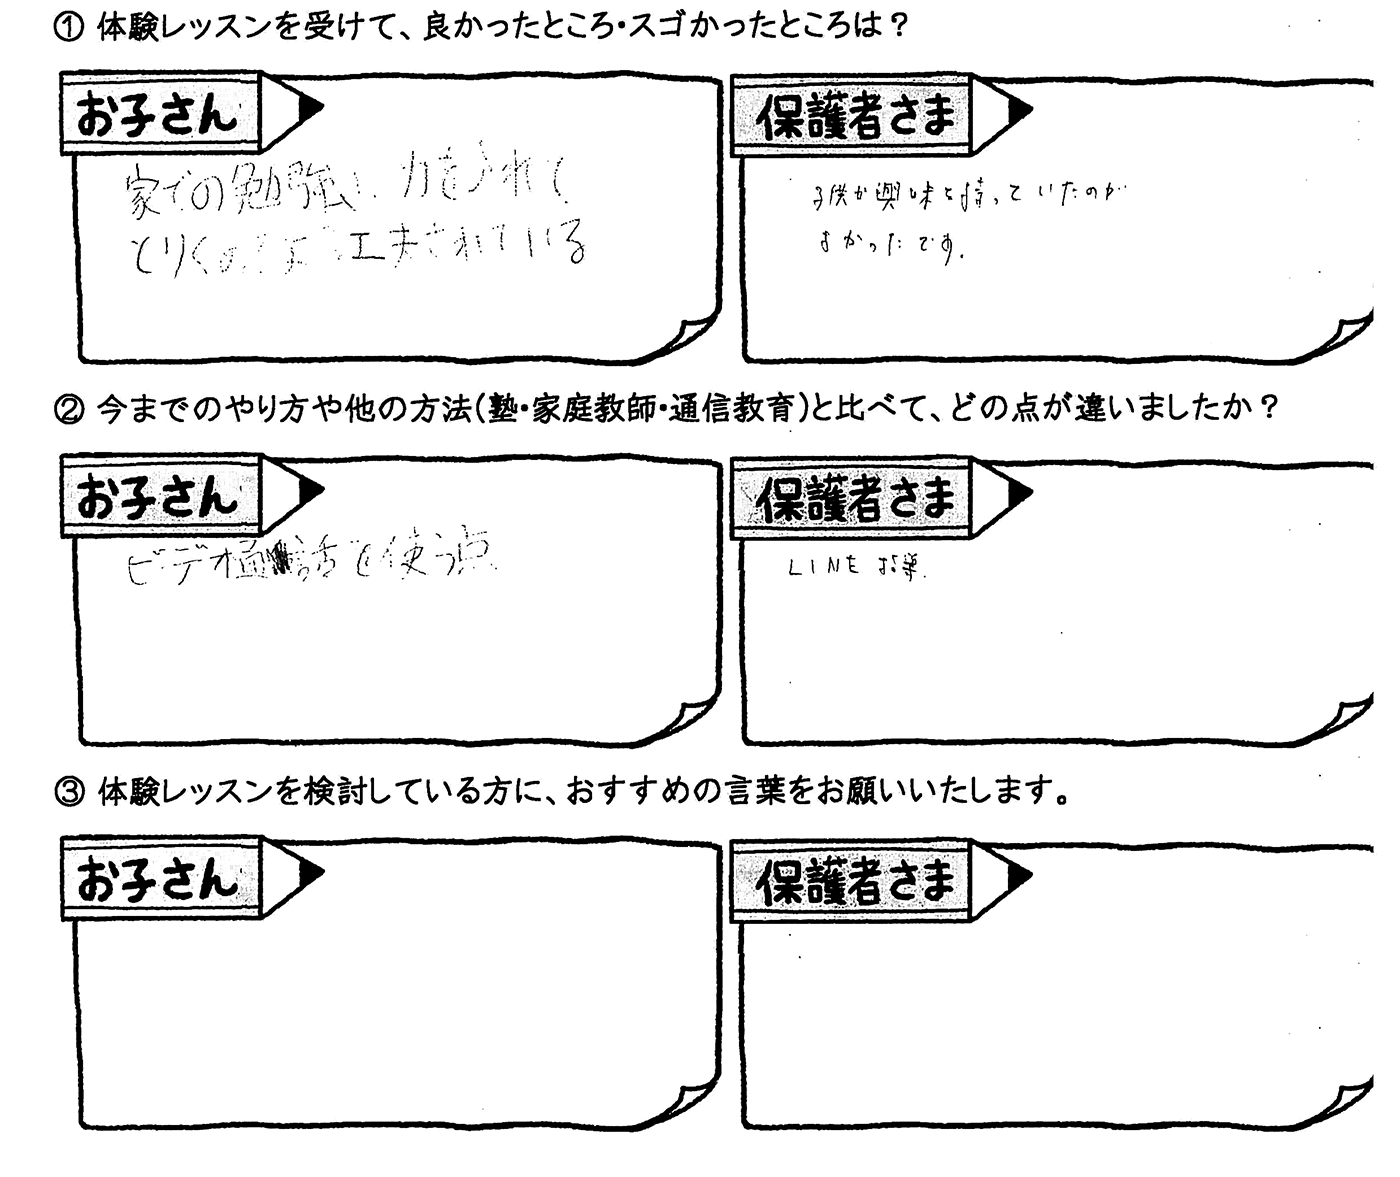 ① 体験レッスンを受けて、良かったところ・スゴかったところは？
お子さん
家での勉強に力を入れて
とりくめるよう工夫されている
保護者さま
子供が興味を持っていたのが
よかったです。
② 今までのやり方や他の方法(塾・家庭教師・通信教育)と比べて、どの点が違いましたか？
お子さん
ビデオ通話を使う点
保護者さま
LINEを
③ 体験レッスンを検討している方に、おすすめの言葉をお願いいたします。
お子さん
保護者さま